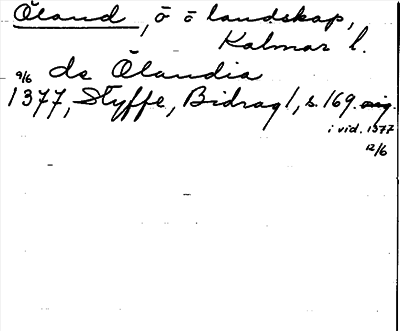 Öland, ö o landskap,
Kalmar l.
9/6 de Ölandia
1377, Styffe, Bidrag 1, s. 169. orig.
i vid. 1377
12/6